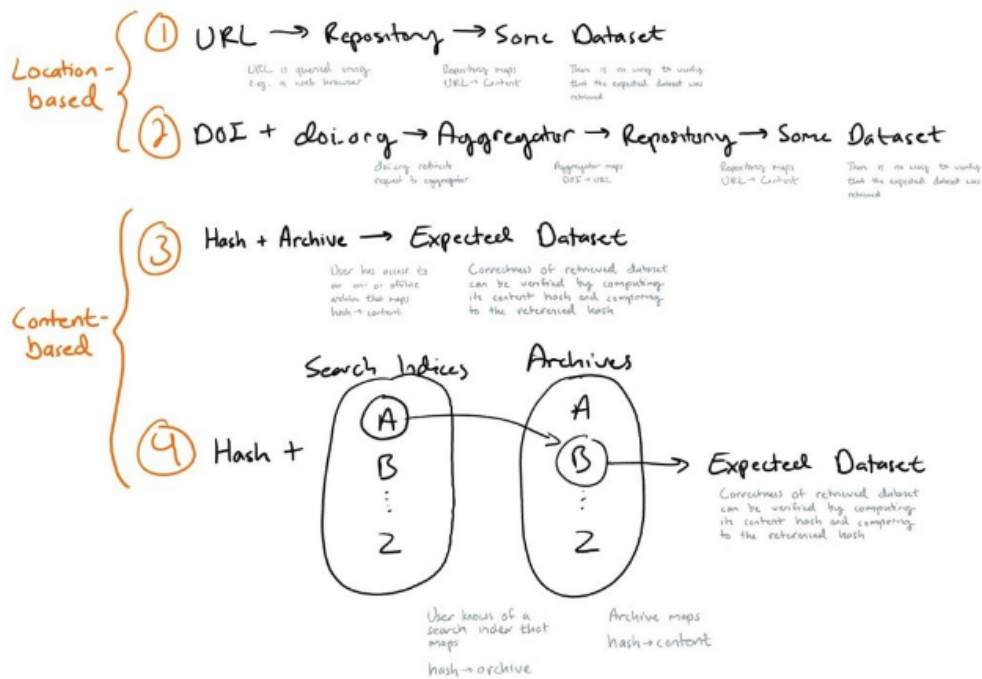 ① URL → Repository → Some Dataset
Location-
based
URL is queried using
e.g. a web browser
Repository maps
URL → Content
There is no way to verify
that the expected dataset was
retrieved
② DOI + doi.org → Aggregator → Repository → Some Dataset
doi.org redirects
request to aggregator
Aggregator maps
DOI → URL
Repository maps
URL → Content
There is no way to verify
that the expected dataset was
retrieved
Content-
based
③ Hash + Archive → Expected Dataset
User has access to
an on- or offline
archive that maps
hash → content
Correctness of retrieved dataset
can be verified by computing
its content hash and comparing
to the referenced hash
Search Indices
Archives
④ Hash +
A
B
Z
A
B
Z
Expected Dataset
Correctness of retrieved dataset
can be verified by computing
its content hash and comparing
to the referenced hash
User knows of a
search index that
maps
hash → archive
Archive maps
hash → content